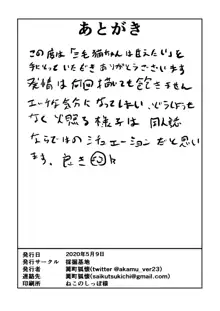 あとがき
この度は「三毛猫ちゃんは甘えたい」を
手にとっていただきありがとうございます
発情は何回描いても飽きません
エッチな気分になってしまい、どうしようも
なく火照る様子は同人誌
ならではのシチュエーションだと思い
ます。良き
発行日 2020年5月9日
発行サークル 採掘基地
発行者 糞町狐懐(twitter @akamu_ver23)
連絡先 糞町狐懐(saikutsukichi@gmail.com)
印刷所 ねこのしっぽ様